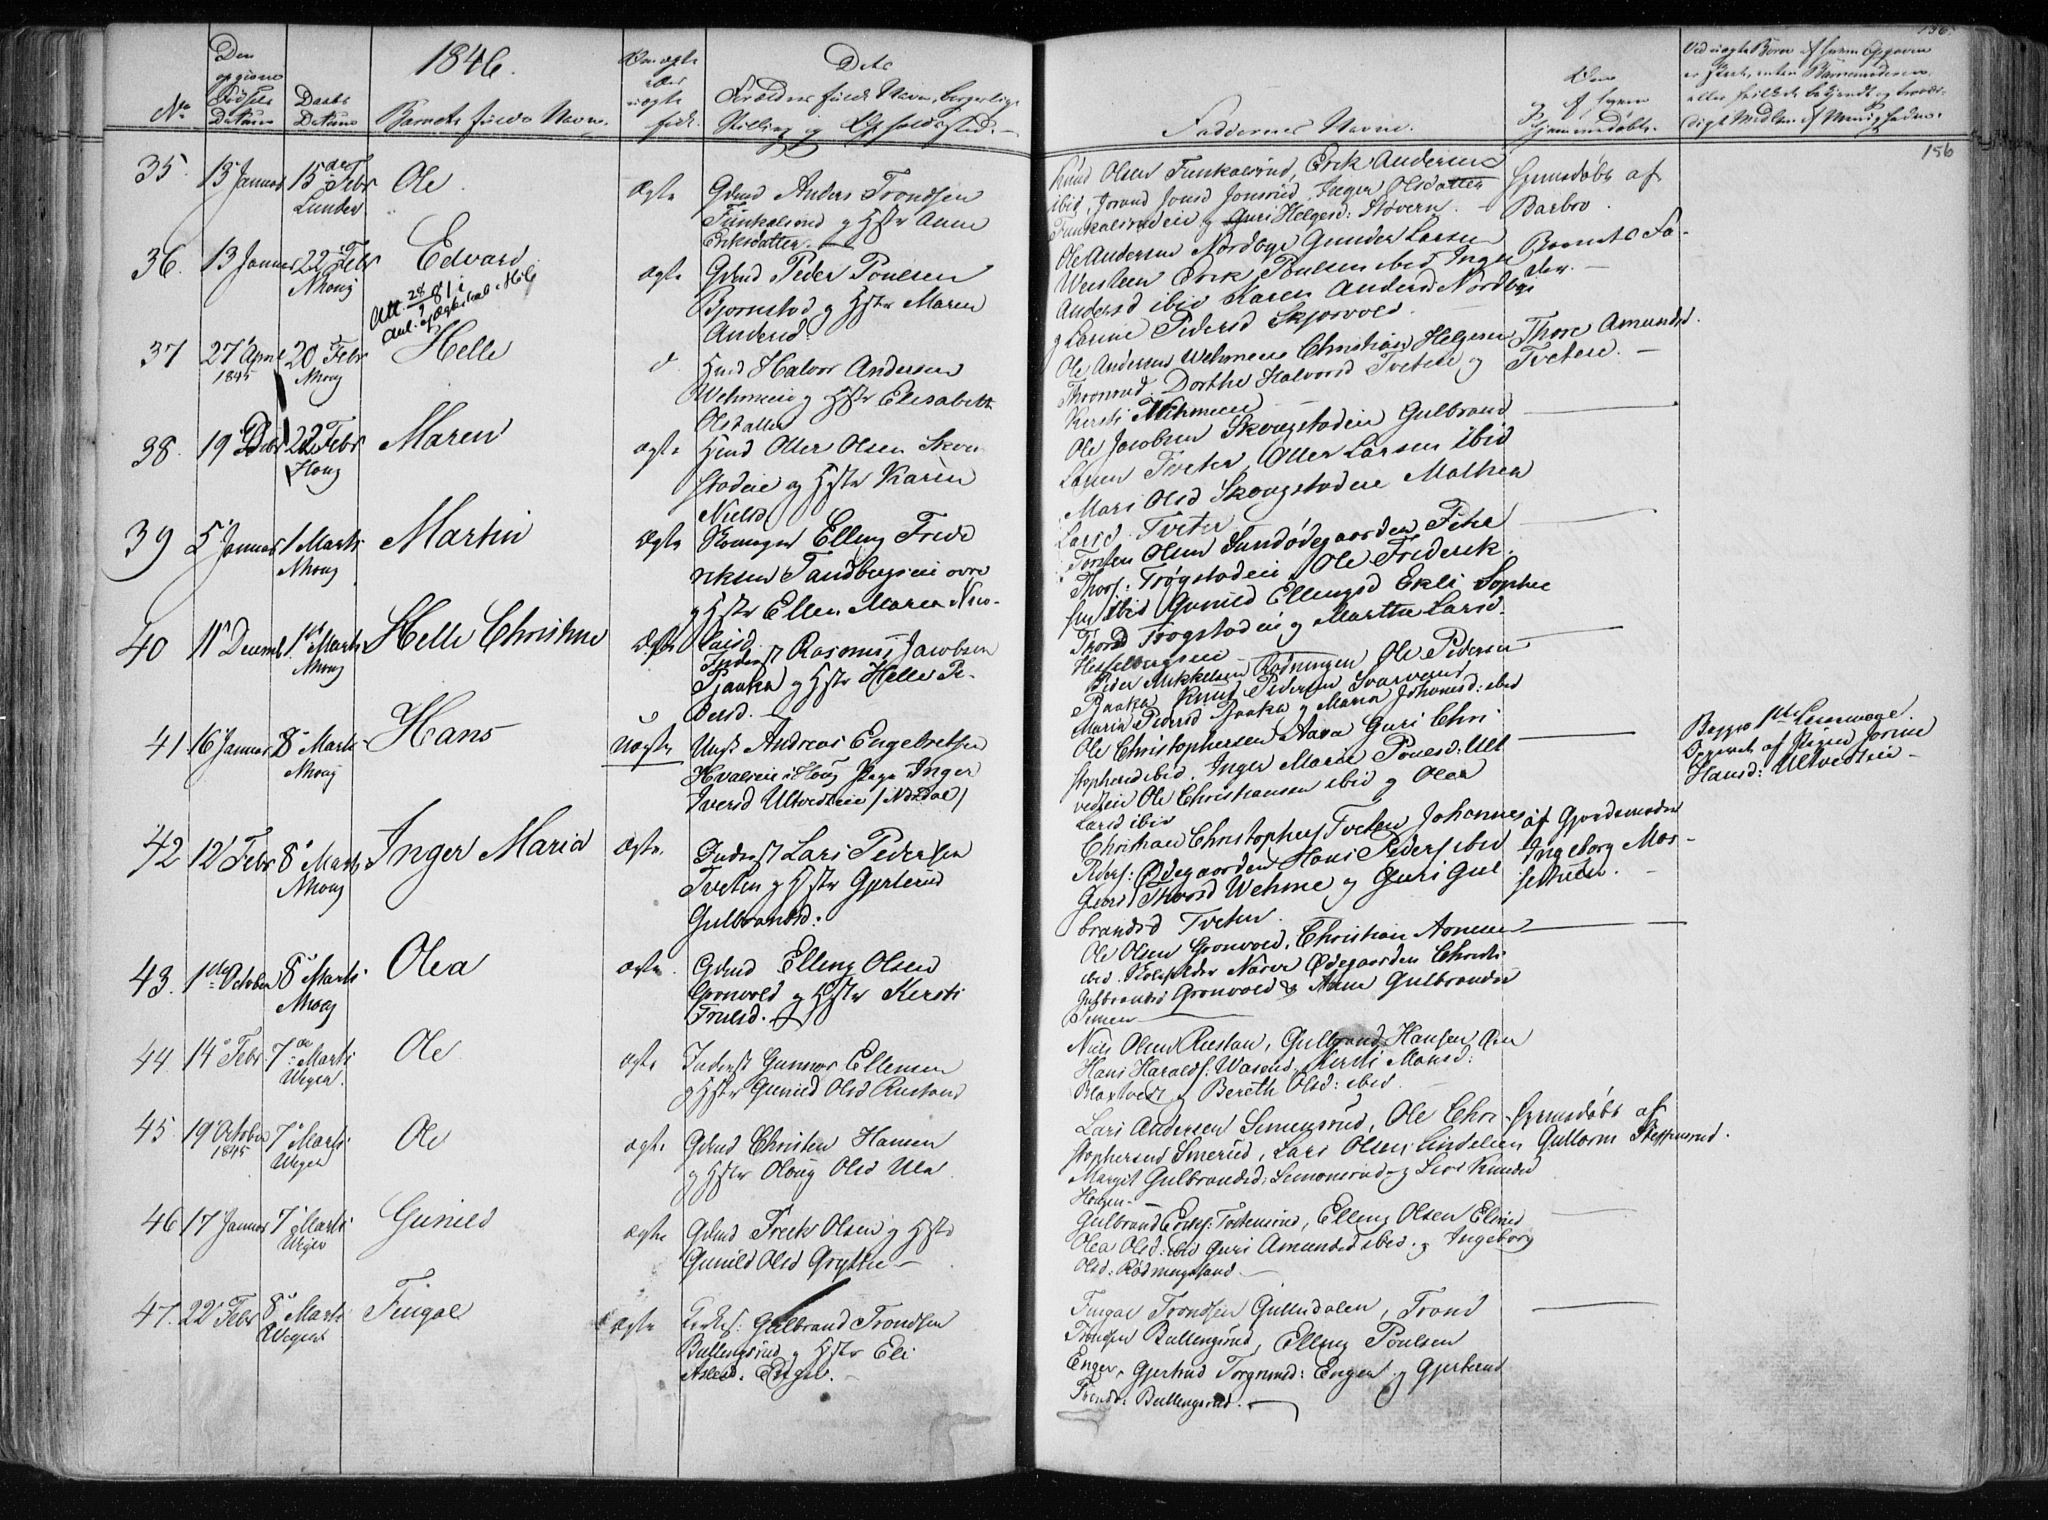 1846.
156
156
No
Den opgivne Fødsels Datum
Daabs Datum
Barnets fulde Navn.
Om ægte eller uægte født.
Dets Forældres fulde Navn, borgerlige Stilling og Opholdssted.
Faddernes Navne.
Om og af hvem hjemmedøbt.
35. 13 Januar 15de Febr Lunder Ole ægte
Gdmd Anders Trondsen
Funkalsrud og Hstr Anne
Eriksdatter.
Knud Olsen Funkalsrud, Erik Andersen
ibid, Jorand Jonsd Jonsrud, Inger Olsdatter
Funkalsrudeie og Guri Helgesd: Støvern.
Hjemdøbt af
Barbro.
36. 13 Januar 22 Febr Edvard ægte
Att. 28/1 81 i
Gdmd Peder Poulsen
Bjornstad og Hstr Maren
Andersd.
Ole Andersen Nordbye Gunder Larsen
Wersteen Erik Poulsen ibid Inger
Andersd ibid Karen Andersd Nordbye
og Larine Pedersd Skjørvold.
Barnets Fader.
37 27 April 1845 20 Febr Helle d
Hmd Halvor Andersen
Wehmeie og Hstr Elisabeth
Olsdatter
Ole Andersen Wehmeie Christian Helgesen
Dorthe Halvorsd Tveten og
Kersti Wehmeie
Thore Amundsd.
Tvetene.
38. 19 Decbr 22 Febr Houg Maren ægte
Hmd Oller Olsen Skou-
stadeie og Hstr Karen
Nielsd.
Ole Jacobsen Skougstadeie Gulbrand
Larsen Tveter, Oller Larsen ibid
Mari Olsd Skougstadeie Mathea
Larsd Tveter.
39 5 Januar 1 Marts Martin Ægte
Elling Frede
riksen Tandbergeie øvre
og Hstr Ellen Marea Nico-
laisd.
Torsten Olsen Sundødegaarden Peter
Thors: Trøgstadeie Ole Frederik
sen ibid Gunild Ellingsd Ekli Sophie
Thorsd Trøgstadeie og Marthe Larsd.
Hesselbergeie
40 11 Decemb. 1ste Marts Helle Christine Ægte
Inderst Rasmus Jacobsen
Pjaaka og Hstr Helle Pe-
dersd.
Peder Mikkelsen Rødningen Ole Pedersen
Pjaaka Knud Pedersen Svarveruds
Maria Pedersd Pjaaka og Maria Johanesd: ibid
41 16 Januar 8 Marts Hans uægte
Ungk Andreas Engebretsen
Hvalseie i Houg Pige Inger
Iversd Ultvedteie / Nordal /
Ole Christophersen Aasa Guri Chri
stophersd ibid. Inger Marie Poulsd: Ult
vedteie Ole Christiansen ibid og Olea
Larsd ibid
Begges 1ste Leiermaal.
Opgivet af Pigen Jorine
Hansd: Ultvedteie
42 12 Febr 8 Marts Inger Maria Ægte.
Inderst Lars Pedersen
Tveten og Hstr Gjertrud
Gulbrandsd:
Christian Christophers Tveten Johannes
Peders: Ødegaarden Hans Peders ibid
Guri Thorsd Wehme og Guri Gul
brandsd Tveten.
af Gjordemoder
Ingeborg Mos-
serud.
43. 1ste October 8 Marts Olea ægte.
Gdmd Elling Olsen
Gronvold og Hstr Kersti
Truelsd.
Ole Olsen Gronvold, Christian Arnesen
ibid. Narve Ødegaarden Christi
Gulbrandsd Gronvold & Anne Gulbrandsd
Semen
44 14 Febr. 7de Marts Weger. Ole ægte
Inderst Gunnar Ellensen
og Hstr Gunild Olsd Rustand
Niels Olsen Rustan, Gulbrand Hansen
Hans Haralds: Wasend, Kersti Monsd:
Blaxtvedt og Bereth Olsd: ibid.
45 19 October 1845 7 Marts Weger Ole ægte
Gdmd Christen Hansen
og Hstr Oloug Olsd Ula
Lars Andersen Simensrud, Ole Chri
stophersend Smerud, Lars Olsen Lindelien
Margit Gulbrandsd: Simonsrud og Siri Knudsd
Hougen
Hjemdøbt af
Guttorm Steffensrud.
46 17 Januar 7 Marts Weger Gunild ægte
Gdmd Fredk Olsen og Hstr
Gunild Olsd Grytte
Gulbrand Eriks: Tostensrud, Elling Olsen Elsrud
Olea Olsd: ibid Guri Amundsd ibid. og Ingeborg
Olsd: Rødningsand
47. 22 Febr 8 Marts Weger Fingal ægte
Gulbrand Trondsen
Bullengsrud og Hstr Eli
Aslesd. Enger.
Fingal Trondsen Gullerdalen, Trond
Trondsen Bullengsrud, Elling Poulsen
Enger, Gjertrud Torgrimsd: Enger og Gjertrud
Trondsd: Bullengsrud.